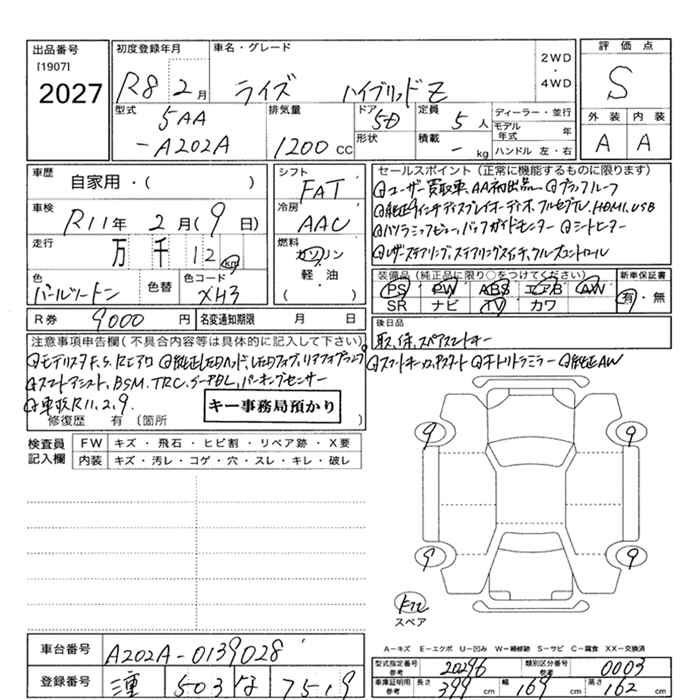 出品番号
[1907]
2027
初度登録年月
R8 2月
車名・グレード
ライズ ハイブリッドZ
2WD
・
4WD
評価点
S
外装 内装
A A
型式
5AA
-A202A
排気量
1200 CC
ドア
5D
形状
定員
5人
積載
- kg
ディーラー・並行
モデル年式 年
ハンドル 左・右
車歴
自家用・( )
車検
R11年 2月(9日)
走行
万 千 12 km
色
パールツートン
色替
色コード
XH3
シフト
FAT
冷房
AAC
燃料
ガソリン
軽・油
( )
R券 9000 円
名変通知期限 月 日
セールスポイント(正常に機能するものに限ります)
ユーザー買取車、AA初出品、ブラックルーフ
純正9インチディスプレイオーディオ、フルセグTV、HDMI、USB
パノラミックビュー、バックガイドモニター シートヒーター
レザーステアリング、ステアリングスイッチ、クルーズコントロール
装備品(純正品に限り○をつけてください)
PS PW ABS エアB AW
SR ナビ TV カワ
新車保証書
有・無
後日品
取、保、スペアスマートキー
スマートキー プッシュスタート オートリトラミラー 純正AW
注意事項申告欄(不具合内容等は具体的に記入して下さい)
モデリスタF、S、Rエアロ 純正LEDヘッド、LEDフォグ、リアフォグランプ
スマートアシスト、BSM、TRC、S-PBL、パーキングセンサー
車検R11.2.9.
キー事務局預かり
修復歴 有(箇所 )
検査員
記入欄
FW キズ・飛石・ヒビ割・リペア跡・X要
内装 キズ・汚レ・コゲ・穴・スレ・キレ・破レ
9 9
9 9
スペア
A-キズ E-エクボ U-凹み W-補修跡 S-サビ C-腐食 XX-交換済
車台番号 A202A-0139028
登録番号 三重 503 な 7519
型式指定番号 参考 20296 類別区分番号 参考 0003
車庫証明用 参考 長さ 399 cm 幅 169 cm 高さ 162 cm